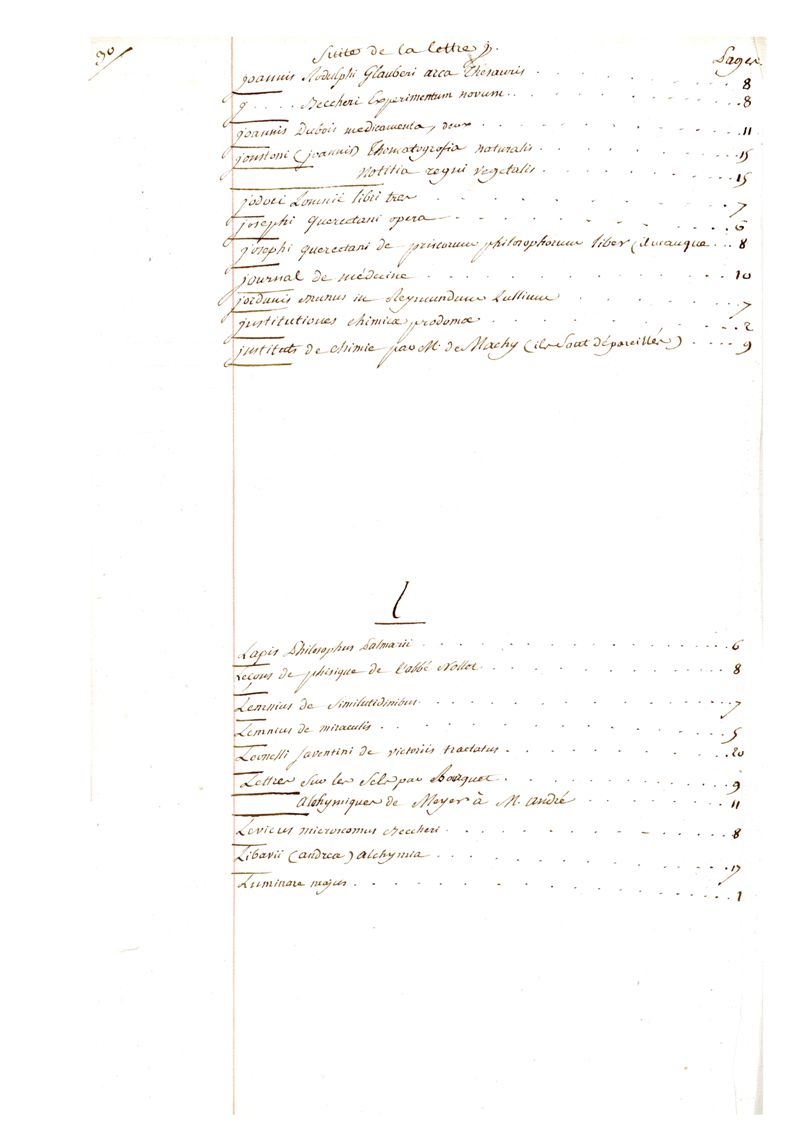 30
Suite de la lettre j.
Pages
joannis Rodolphi Glauberi arca Thesauris . . . 8
j . . . . Beccheri Experimentum novum . . . 8
joannis Dubois medicamenta, deux . . . 11
jonstoni (joannis) Thomatografia naturalis . . . 15
Notitia regni vegetalis . . . 15
jodoci Lomnii libri tres . . . 7
josephi Quercetani opera . . . 6
josephi quercetani de priscorum philosophorum liber . . . 8
journal de médecine . . . 10
jordanis Brunus in Reymundum Lullium . . . 7
justitutiones chimicæ prodomæ . . . 2
justituts de chimie par M. de Machy (ils sont dépareillés) . . . 9
L
Lapis Philosophus Palmarii . . . 6
Leçons de phisique de l'abbé Nollet . . . 8
Lemnius de Similutidinibus . . . 7
Lemnius de miraculis . . . 5
Leonelli faventini de victoriis tractatus . . . 20
Lettres Sur les Sels par Bouquet . . . 9
Alchymiques de Meyer à M. andré . . . 11
Levicus microscomus Beccheri . . . 8
Libavii (andrea) alchymia . . . 17
Luminare majus . . . 1